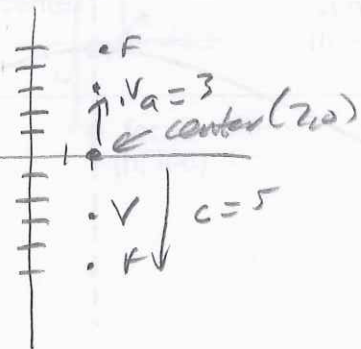 F
V a = 3
center (2,0)
V c = 5
F